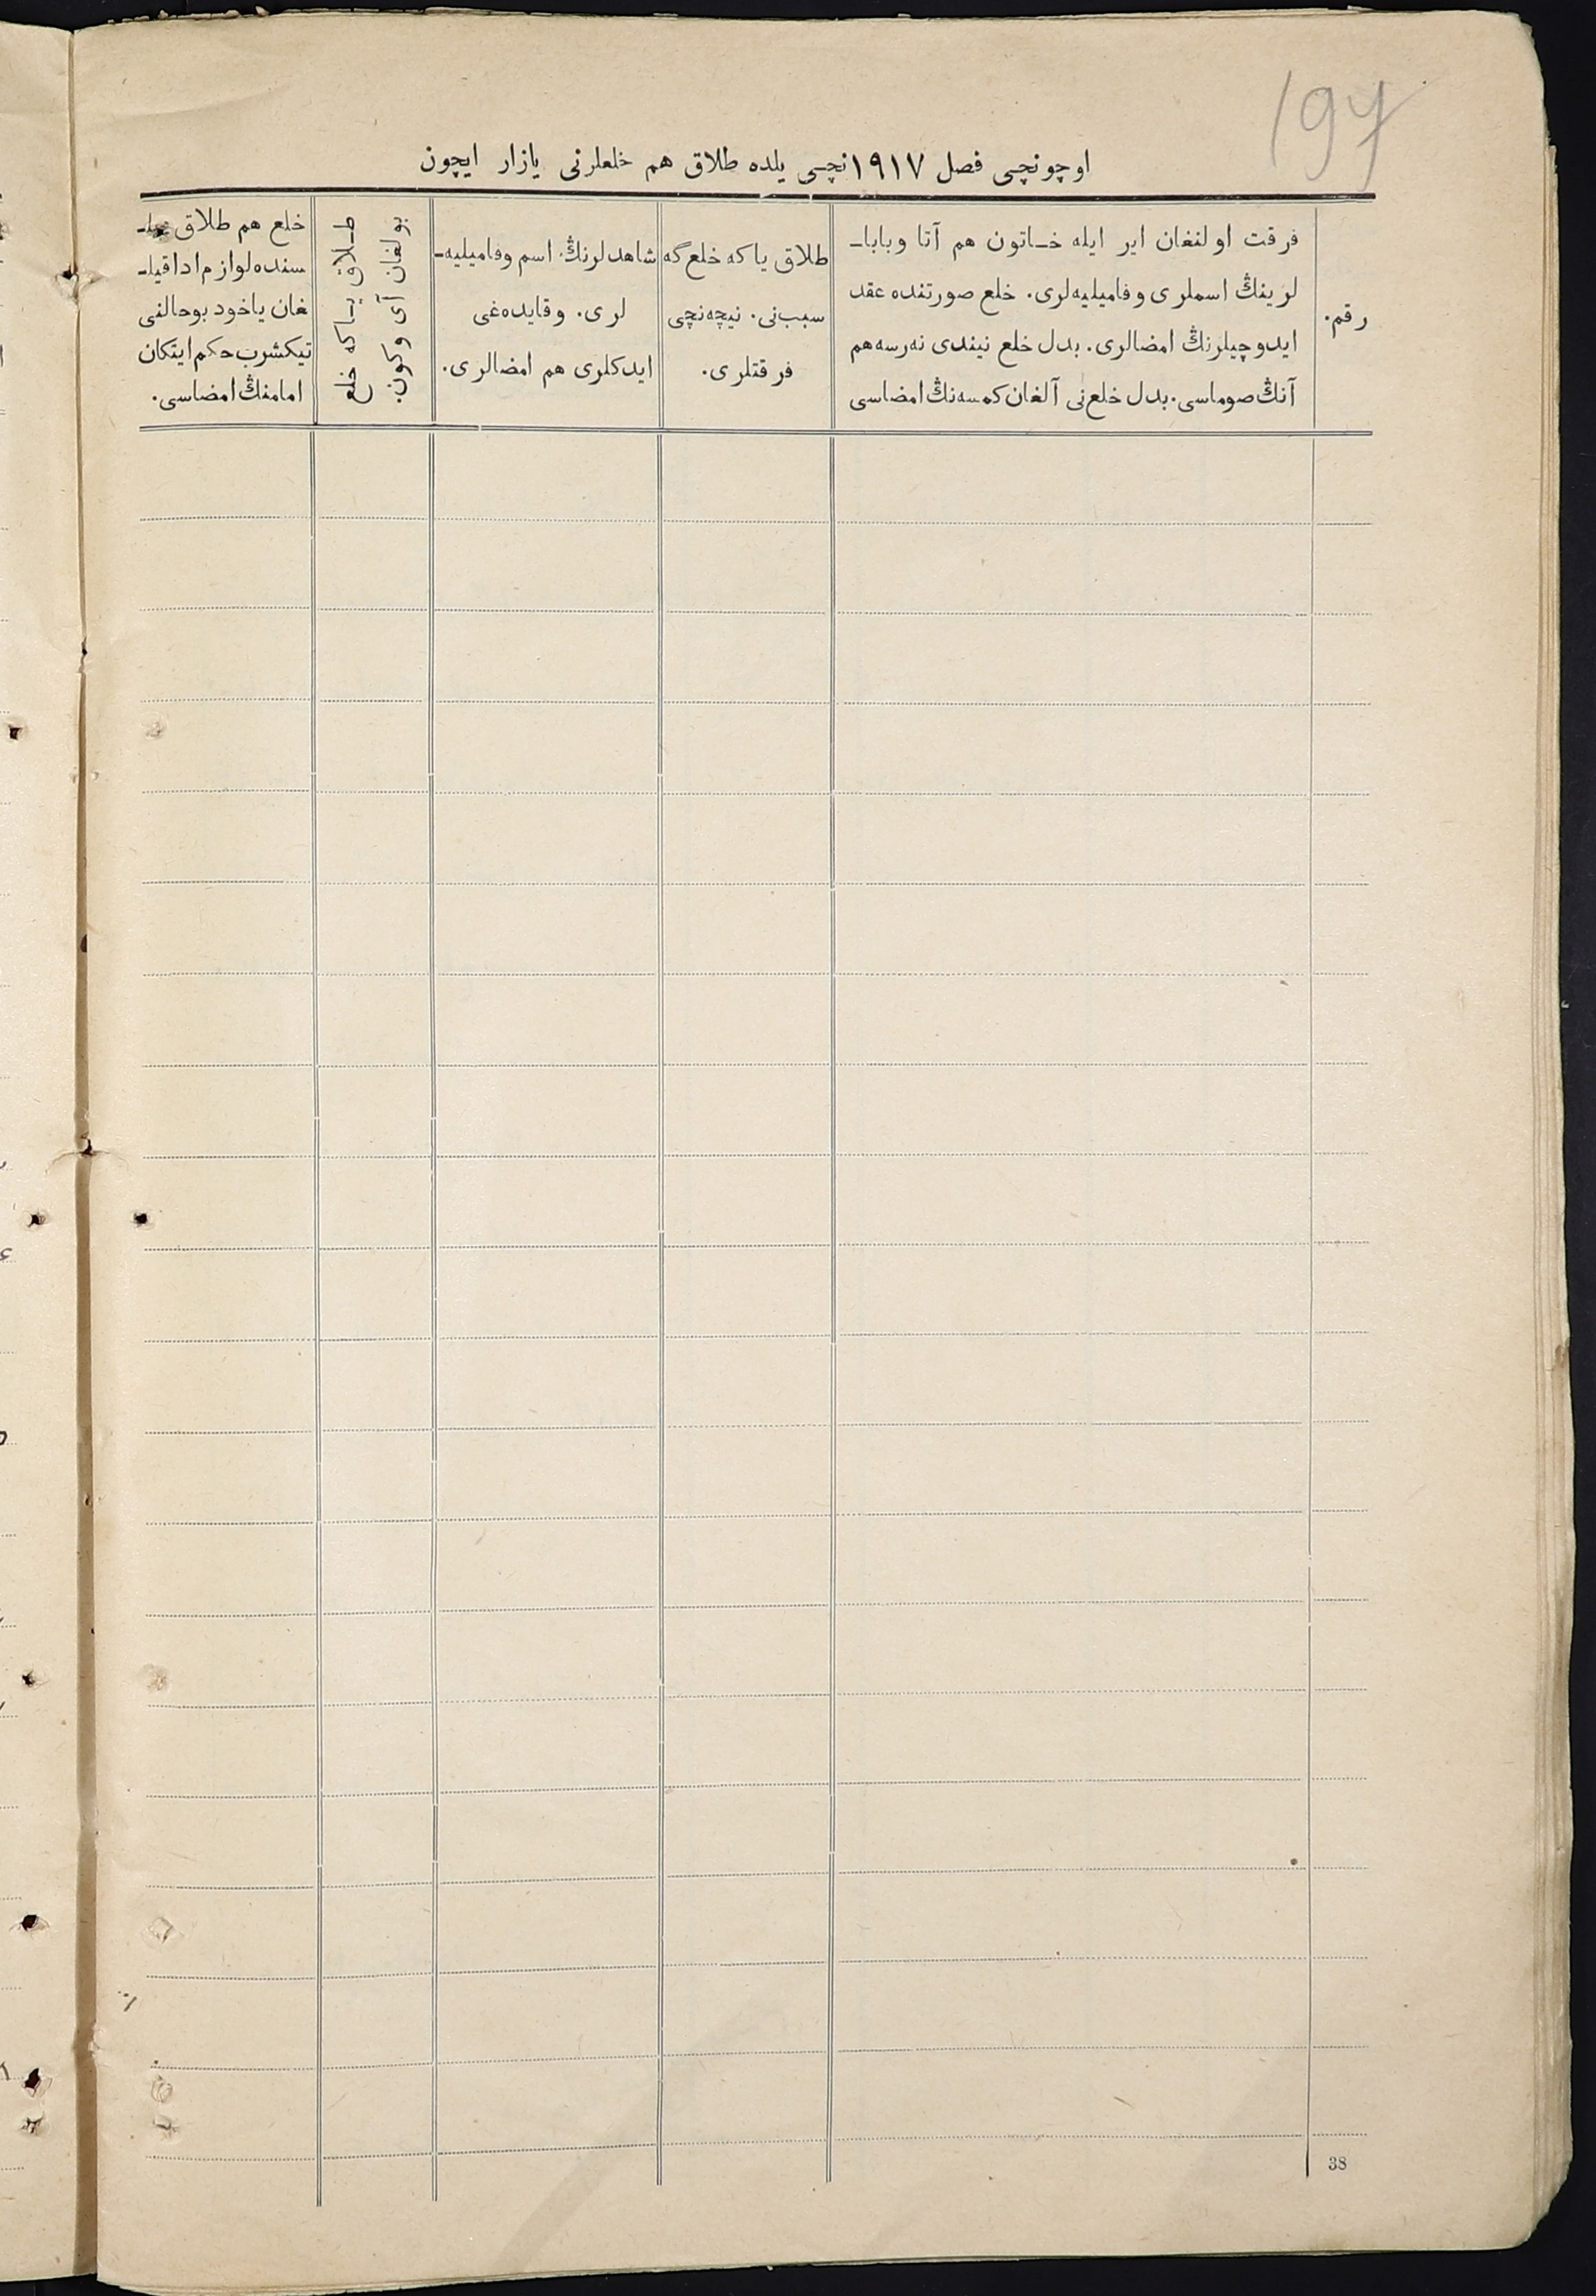 197
اوچونچی فصل ۱۹۱۷نچی یلده طلاق هم خلعلرنی یازار ایچون
رقم.
فرقت اولنغان ایر ایله خـاتون هم آتا وبابا‌ـ
لرینڭ اسملری وفامیلیه‌لری. خلع صورتنده عقد
ایدوچیلرنڭ امضالری. بدل خلع نیندی نه‌رسه‌هم
آنڭ صوماسی. بدل خلع‌نی آلغان کمسه‌نڭ امضاسی
طلاق یاکه خلع‌گه
سبب‌نی. نیچه‌نچی
فرقتلری.
شاهدلرنڭ اسم وفامیلیه‌ـ
لری. وقایده‌غی
ایدکلری هم امضالری.
طـلاق یـاکه خلع
بولغان آی وکون.
خلع هم طلاق
سنده‌لوازم اداقیلـ
غان یاخود بوحالنی
تیکشرب حکم ایتکان
امامنڭ امضاسی.
38